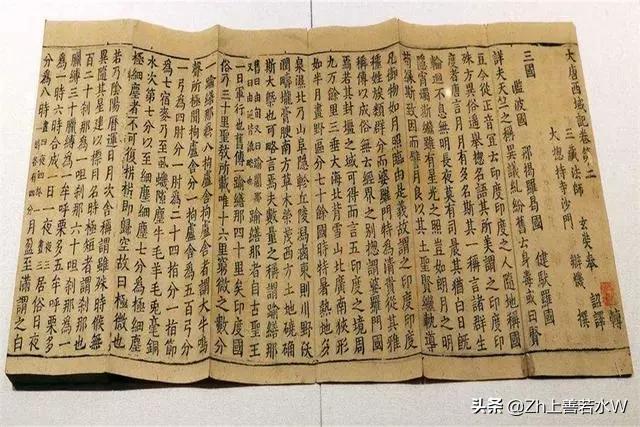 大唐西域記卷第二 轉
三藏法師 玄奘奉 詔譯
大總持寺沙門 辯機 撰
三國
濫波國 那揭羅曷國 健馱羅國
詳夫天竺之稱異議糾紛舊云身毒或曰賢
豆今從正音宜云印度印度之人隨地稱國
殊方異俗遙舉總名語其所美謂之印度印
度者唐言月月有多名斯其一稱言諸群生
輪迴不息無明長夜莫有司晨其猶白日既
隱宵燭斯繼雖有星光之照豈如朗月之明
苟緣斯致因而譬月良以其土聖賢繼軌導
凡御物如月照臨由是義故謂之印度印度
種姓族類群分而婆羅門特為清貴從其雅
稱傳以成俗無云經界之別總謂婆羅門國
焉若其封疆之域可得而言五印度之境周
九万餘里三垂大海北背雪山北廣南狹形
如半月畫野區分七十餘國時特暑熱地多
泉濕北乃山阜隱軫丘陵舄鹵東則川野沃
潤疇壠膏腴南方草木榮茂西方土地磽确
斯大槩也可略言焉夫數量之稱謂踰繕那
踰繕那者自古聖王
一日軍行也舊傳一踰繕那四十里矣印度國
俗乃三十里聖教所載唯十六里窮微之數分
一踰繕那為八拘盧舍拘盧舍者謂大牛鳴
聲所極聞稱拘盧舍分一拘盧舍為五百弓分
一弓為四肘分一肘為二十四指分一指節
為七宿麥乃至虱蟣隙塵牛毛羊毛兔毫銅
水次第七分以至細塵細塵七分為極細塵
極細塵者不可復析析即歸空故曰極微也
若乃陰陽曆運日月次舍稱謂雖殊時候無
異隨其星建以標月名時極短者謂刹那也
百二十刹那為一呾刹那六十呾刹那為一
臘縛三十臘縛為一牟呼栗多五牟呼栗多
為一時六時合成一日一夜 晝三夜三 居俗日夜
分為八時 月盈至滿謂之白
头条 @Zh上善若水W